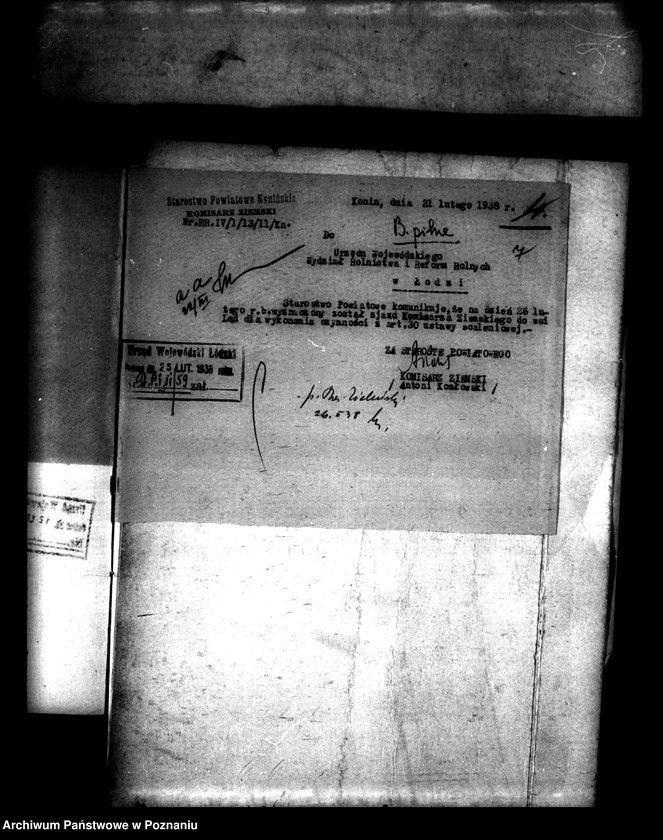 Starostwo Powiatowe Konińskie
KOMISARZ ZIEMSKI
Nr.RR.IV/1/13/11/Kn.
Konin, dnia 21 lutego 1938 r.
B. pilne
Do
Urzędu Wojewódzkiego
Wydział Rolnictwa i Reform Rolnych
w Łodzi
7
a a
Starostwo Powiatowe komunikuje, że na dzień 26 lu-
tego r.b. wyznaczony został zjazd Komisarza Ziemskiego do wsi
Ląd dla wykonania czynności z art.30 ustawy scaleniowej.-
ZA STAROSTĘ POWIATOWEGO
KOMISARZ ZIEMSKI
Antoni Kozłowski
Urząd Wojewódzki Łódzki
dn. 25 LUT. 1938
zał.
Archiwum Państwowe w Poznaniu